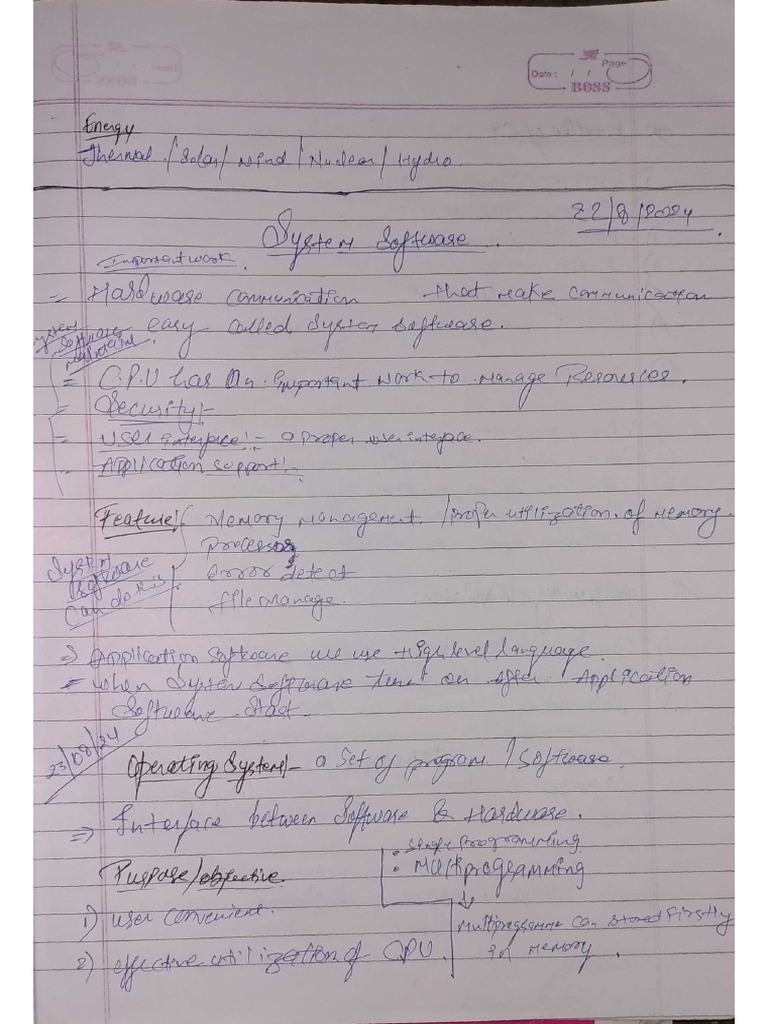 Date : / / Page
BOSS
Energy
Thermal / Solar / Wind / Nuclear / Hydro
22/8/2024
System Software
Important work
= Hardware communication that make communication
easy called System Software.
System Software
= C.P.U has an important work to manage Resources.
= Security :-
= User interface :- a proper user interface.
- Application support :-
Feature :- Memory Management / Proper utilization of Memory.
Processor
System error detect
Software
can do this file manage.
=> Application software we use High level language.
= When System Software turn on after Application
Software Start.
23/08/24
Operating System :- a set of program / Software.
=> Interface between Software & Hardware.
• Single programming
Purpose/objective • Multiprogramming
1) user convenient.
Multiprogramme can stored Firstly
2) effective utilization of CPU. in Memory.